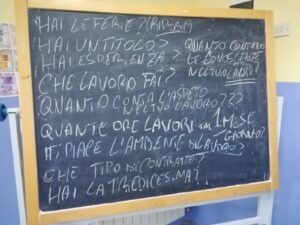 HAI LE FERIE?
HAI UN TITOLO?
HAI ESPERIENZA?
QUANTO CONTANO
LE CONOSCENZE
NEL TUO LAVORO?
CHE LAVORO FAI?
QUANTO CONTA L'ASPETTO
NEL TUO LAVORO???
QUANTE ORE LAVORI in 1 MESE
GIORNO?
TI PIACE L'AMBIENTE DI LAVORO?
CHE TIPO DI CONTRATTO?
HAI LA TREDICESIMA?